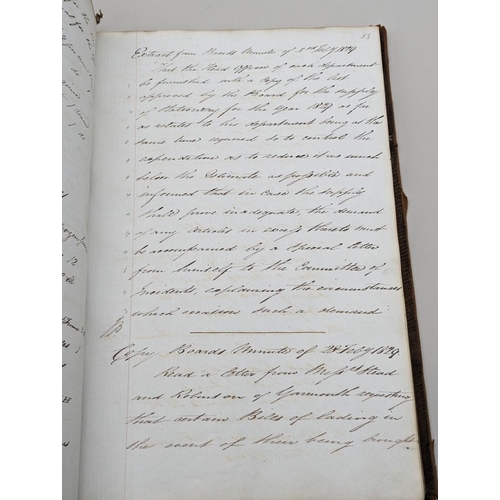 53
Extract from Boards Minute of 3rd Feby 1829
That the Head officer of each department
be furnished with a Copy of the list
approved by the Board for the supply
of Stationery for the year 1829 as far
as relates to his department being at the
same time required so to control the
expenditure as to reduce it as much
below the Estimate as possible and
informed that in case the supply
shall prove inadequate, the demand
of any articles in excess thereto must
be accompanied by a Special letter
from himself to the Committee of
Incidents explaining the circumstances
which occasion such a demand
Copy Boards Minute of 28 Feby 1829
Read a letter from Messrs. Head
and Robertson of Yarmouth requesting
that certain Bills of lading in
the event of their being brought